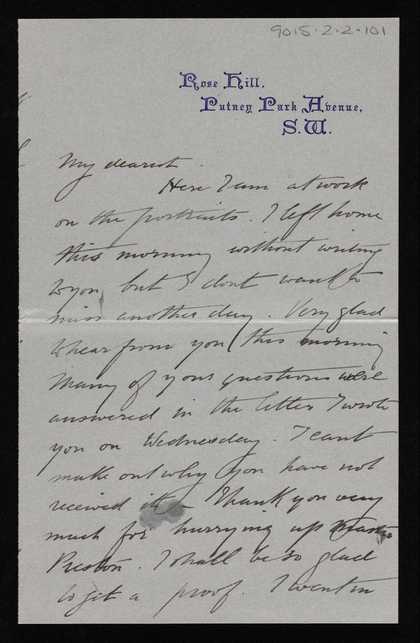 9015.2.2.101
Rose Hill,
Putney Park Avenue,
S.W.
My dearest.
Here I am at work
on the portraits. I left home
this morning without writing
to you, but I dont want to
miss another day. Very glad
to hear from you this morning
Many of your questions were
answered in the letter I wrote
you on Wednesday. I cant
make out why you have not
received it – Thank you very
much for hurrying up
Preston. I shall be so glad
to get a proof. I went in